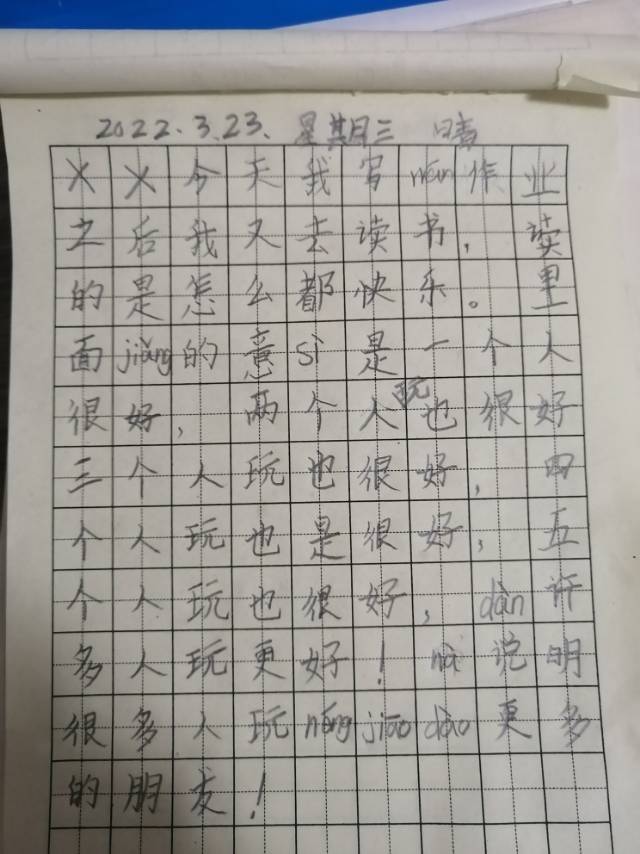 2022.3.23. 星期三 晴
××今天我写wán作业
之后我又去读书，读
的是怎么都快乐。里
面jiǎng的意sì是一个人
很好，两个人玩也很好
三个人玩也很好，四
个人玩也是很好，五
个人玩也很好，dàn许
多人玩更好！nà说明
很多人玩néngjiāodào更多
的朋友！